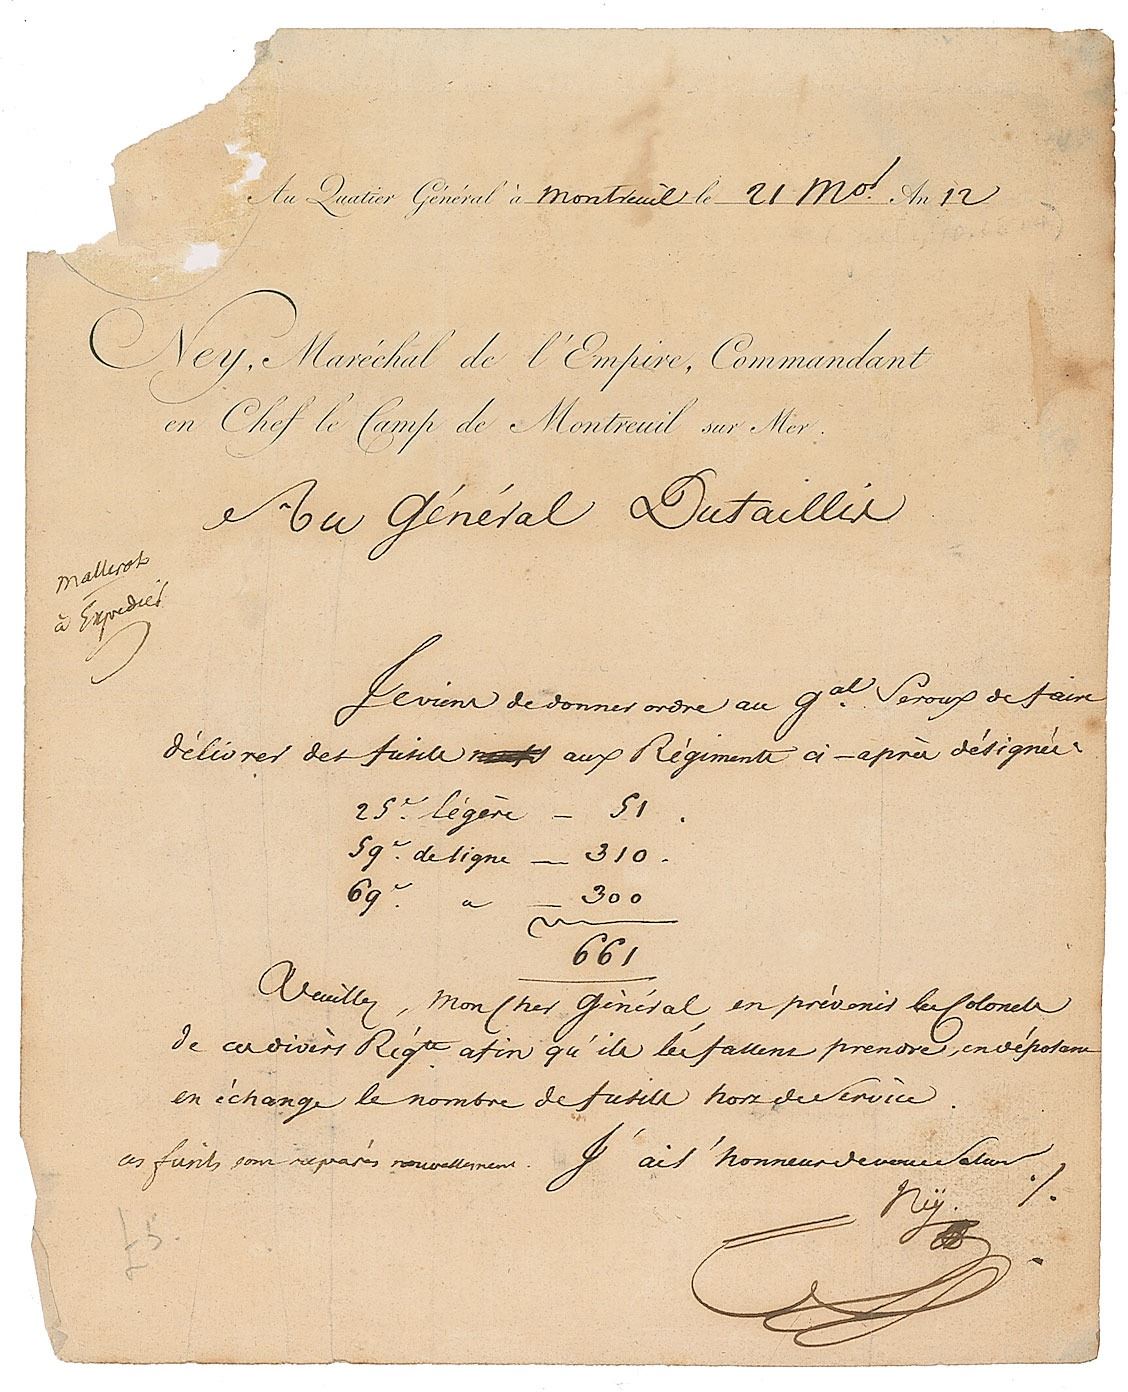 Au Quatier Général à Montreuil le 21 Mor. An 12
Ney, Maréchal de l'Empire, Commandant
en Chef le Camp de Montreuil sur Mer.
Au Général Dutaillis
à Expédier
Je viens de donner ordre au gal. Seroux de faire
délivrer des fusils neufs aux Régiments ci-après désignés
25e. légère — 51.
59e. de ligne — 310.
69e. " — 300
661
Veuillez, Mon Cher Général, en prévenir les Colonels
de ces divers Régts afin qu'ils les fassent prendre, en déposant
en échange le nombre de fusils hors de Service.
ces fusils sont réparés nouvellement.
J'ai l'honneur de vous Saluer
Ney.
£5.